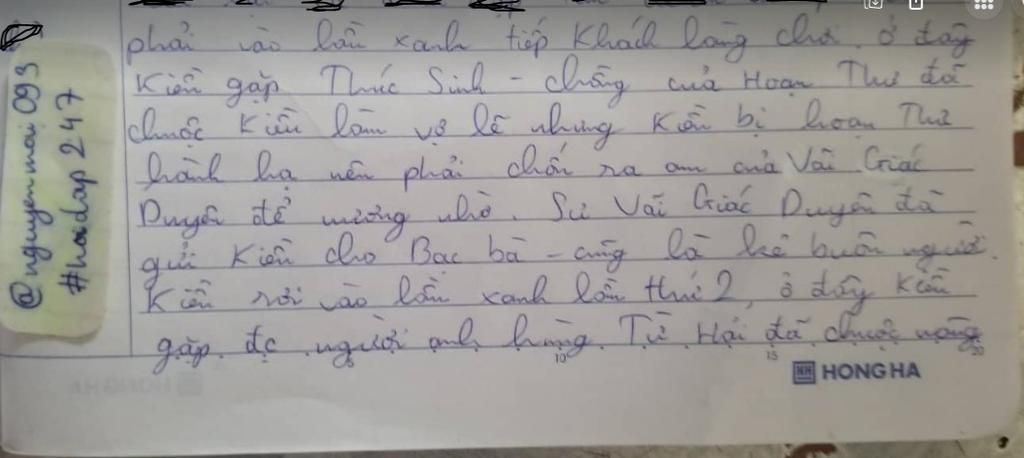 phải vào lần xanh tiếp Khách làng chơi. ở đây
Kiều gặp Thúc Sinh - chồng của Hoạn Thư đã
chuộc Kiều làm vợ lẽ nhưng Kiều bị hoạn Thư
hành hạ nên phải chốn ra am của Vãi Giác
Duyên để nương nhờ. Sư Vãi Giác Duyên đã
gửi Kiều cho Bạc bà - cũng là kẻ buôn người.
Kiều rơi vào lần xanh lần thứ 2, ở đây Kiều
gặp đc người anh hùng Từ Hải đã chuộc nàng
5 10 15 20
HONG HA
@nguyenmai093
#hoidap247